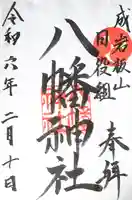 成岩板山
目役組
奉拝
八幡神社
令和六年二月十日